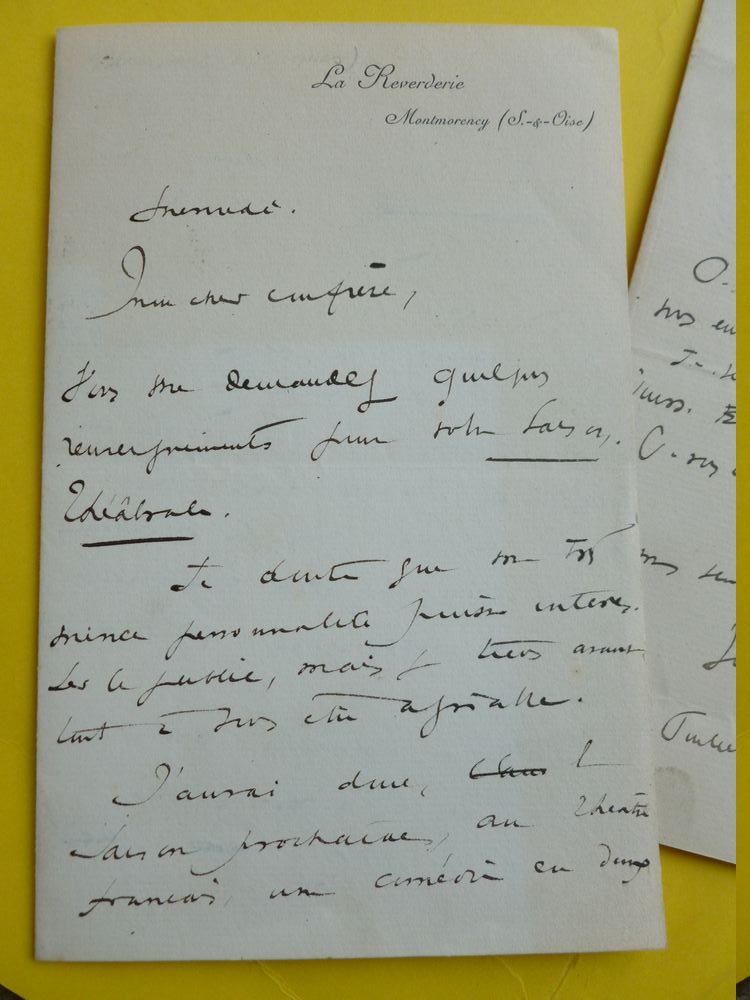 La Reverderie
Montmorency (S.-&-Oise)
Mercredi.
Mon cher confrère,
Vous me demandez quelques
renseignements pour votre Saison
théâtrale.
Je doute que ma très
mince personnalité puisse intéres-
ser le public, mais je tiens avant
tout à vous être agréable.
J'aurai donc, la
saison prochaine, au théâtre
français, une comédie en deux